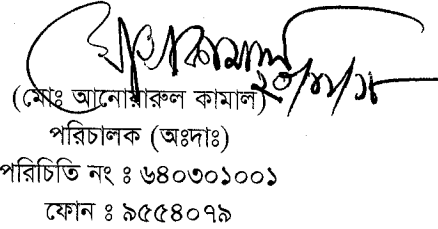 (মোঃ আনোয়ারুল কামাল)
পরিচালক (অঃদাঃ)
পরিচিতি নং ঃ ৬৪০৩০১০০১
ফোন ঃ ৯৫৫৪০৭৯